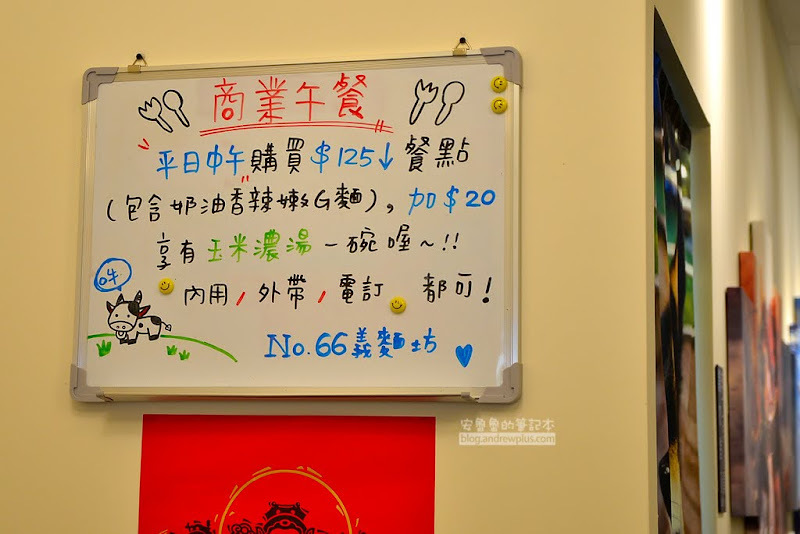 商業午餐
"平日中午"購買$125↓餐點
(包含奶油香辣嫩G麵),加$20
享有玉米濃湯一碗喔~!!
吽
內用/外帶/電訂 都可!
No.66義麵坊
安魯魯的筆記本
blog.andrewplus.com